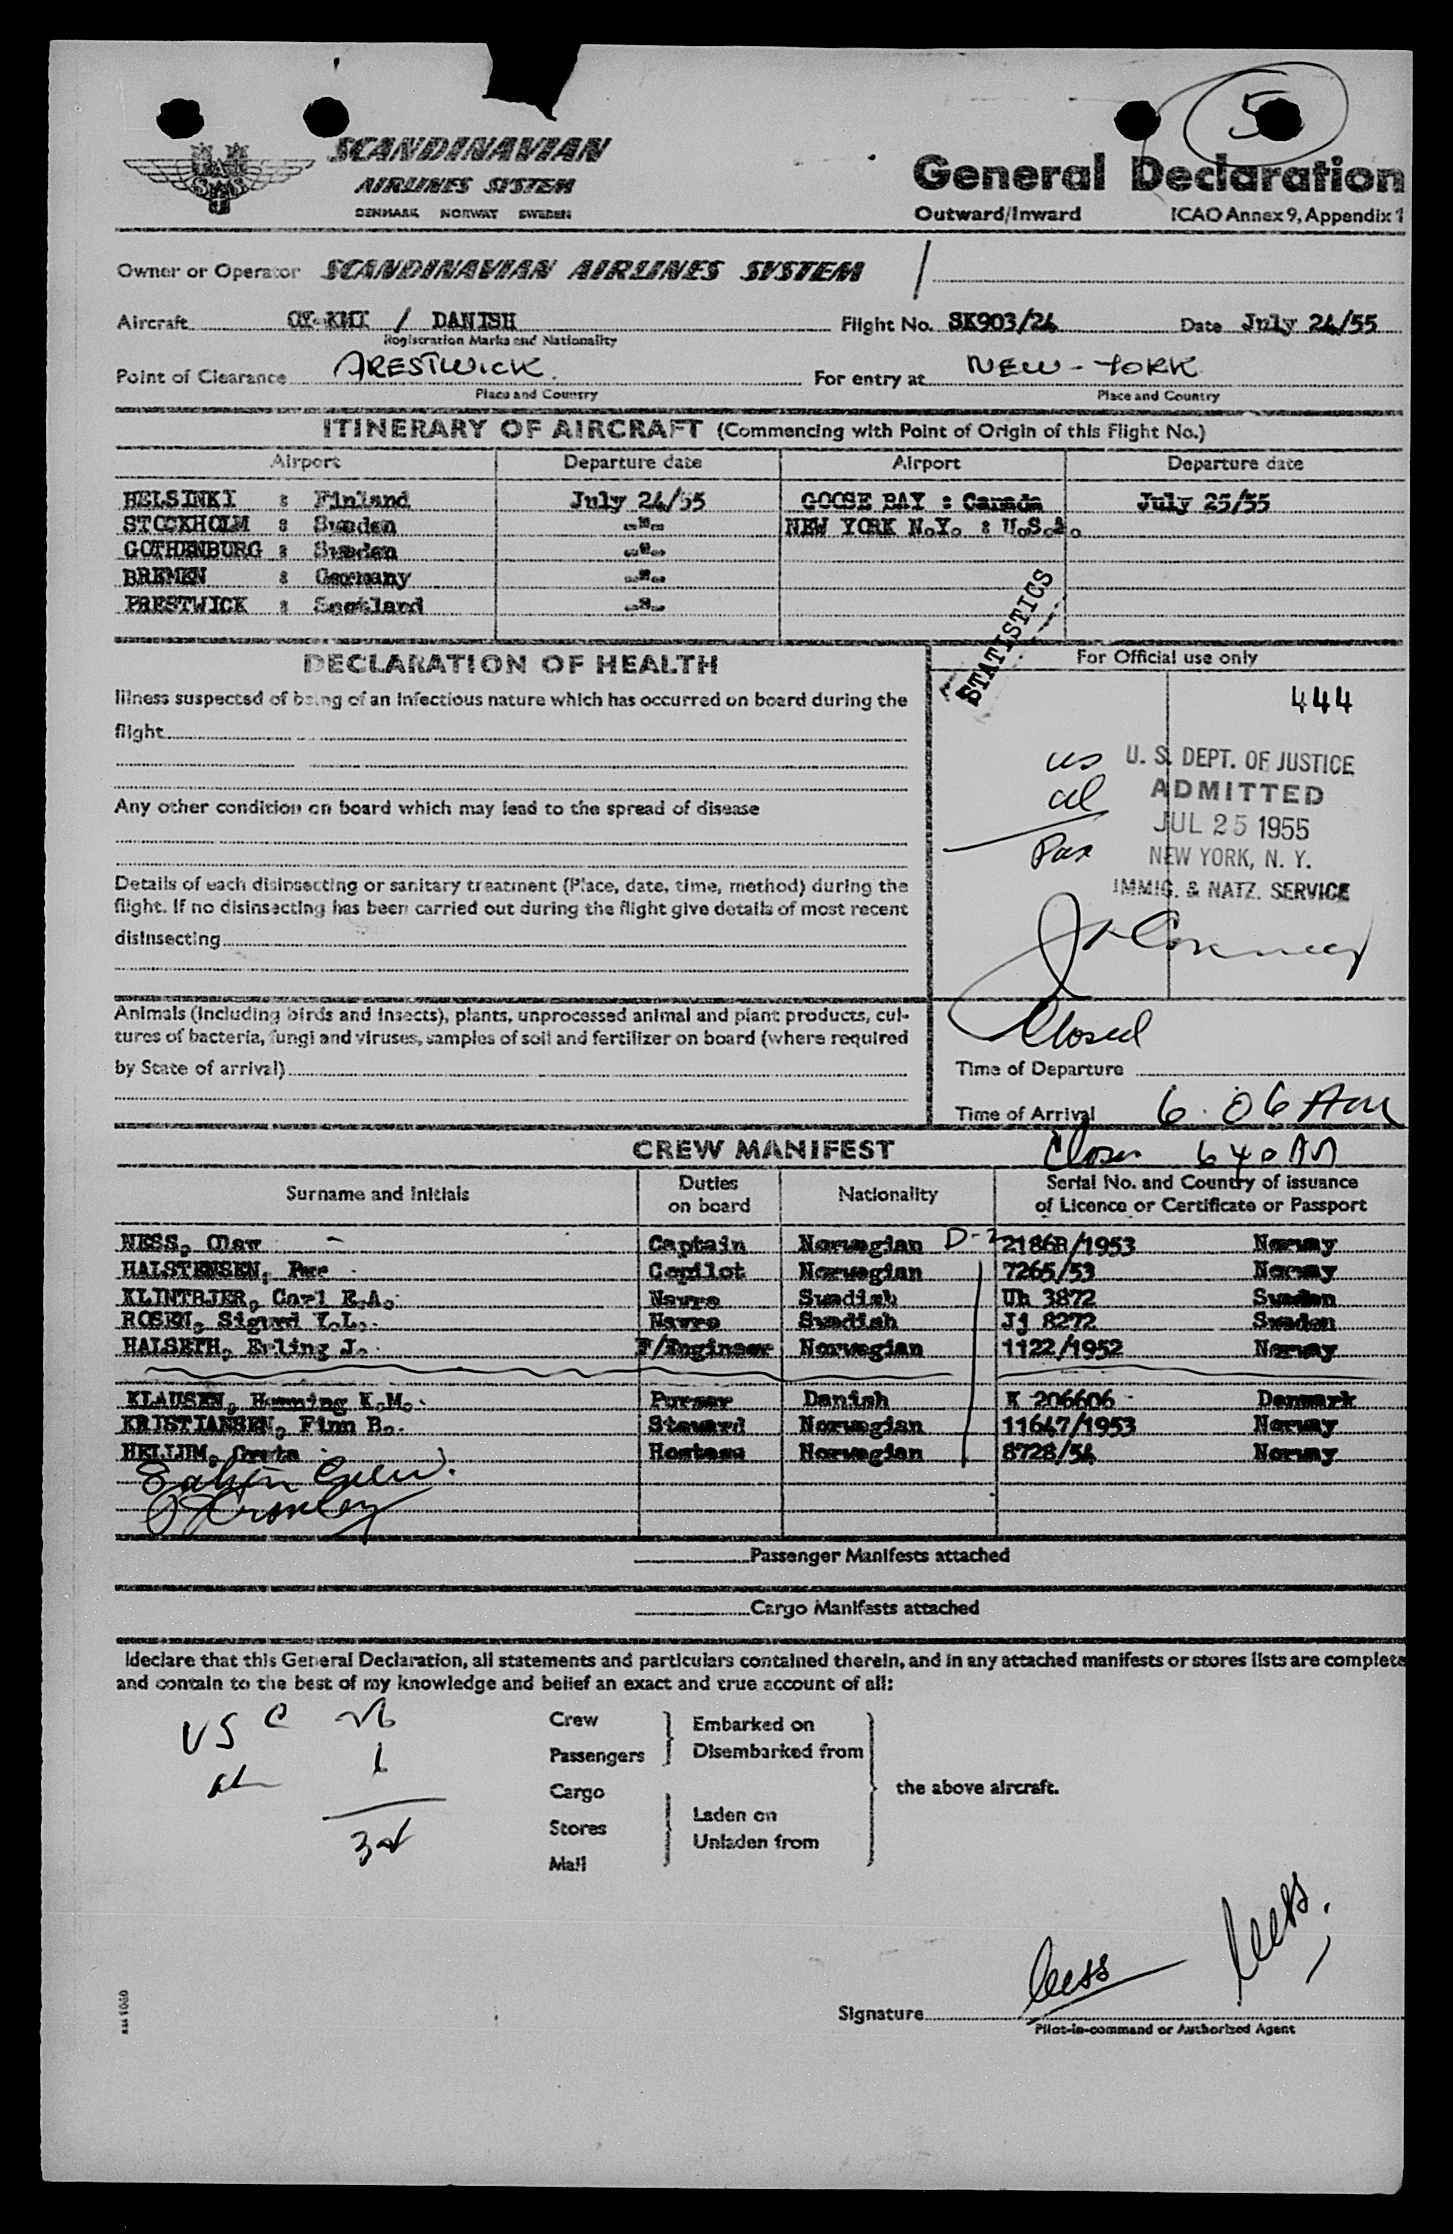 5
SCANDINAVIAN
AIRLINES SYSTEM
DENMARK NORWAY SWEDEN
SAS
General Declaration
Outward/Inward ICAO Annex 9, Appendix 1
Owner or Operator SCANDINAVIAN AIRLINES SYSTEM
Aircraft OY-KMI / DANISH Flight No. SK903/24 Date July 24/55
Registration Marks and Nationality
Point of Clearance PRESTWICK. For entry at NEW-YORK
Place and Country Place and Country
ITINERARY OF AIRCRAFT (Commencing with Point of Origin of this Flight No.)
Airport Departure date Airport Departure date
HELSINKI : Finland July 24/55 GOOSE BAY : Canada July 25/55
STOCKHOLM : Sweden -"- NEW YORK N.Y. : U.S.A.
GOTHENBURG : Sweden -"-
BREMEN : Germany -"-
PRESTWICK : Scotland -"-
STATISTICS
DECLARATION OF HEALTH
Illness suspected of being of an infectious nature which has occurred on board during the
flight
Any other condition on board which may lead to the spread of disease
Details of each disinsecting or sanitary treatment (Place, date, time, method) during the
flight. If no disinsecting has been carried out during the flight give details of most recent
disinsecting
Animals (including birds and insects), plants, unprocessed animal and plant products, cul-
tures of bacteria, fungi and viruses, samples of soil and fertilizer on board (where required
by State of arrival)
For Official use only
444
us
al
Pax
U. S. DEPT. OF JUSTICE
ADMITTED
JUL 25 1955
NEW YORK, N. Y.
IMMIG. & NATZ. SERVICE
Closed
Time of Departure
Time of Arrival 6.06 AM
Closed 640 AM
CREW MANIFEST
Surname and Initials Duties on board Nationality Serial No. and Country of issuance of Licence or Certificate or Passport
NESS, Olaw Captain Norwegian D-2 2186B/1953 Norway
HALSTENSEN, Per Copilot Norwegian 7265/53 Norway
KLINTBJER, Carl E.A. Navro Swedish Uh 3872 Sweden
ROSEN, Sigurd Y.L. Navro Swedish Jj 8272 Sweden
HALSETH, Erling J. F/Engineer Norwegian 1122/1952 Norway
KLAUSEN, Henning K.M. Purser Danish K 206606 Denmark
KRISTIANSEN, Finn B. Steward Norwegian 11647/1953 Norway
HELLUM, Greta Hostess Norwegian 8728/54 Norway
Crew.
Passenger Manifests attached
Cargo Manifests attached
I declare that this General Declaration, all statements and particulars contained therein, and in any attached manifests or stores lists are complete
and contain to the best of my knowledge and belief an exact and true account of all:
US C 26
Crew
Passengers
Cargo
Stores
Mail
Embarked on
Disembarked from
Laden on
Unladen from
the above aircraft.
Ness
Ness
Signature
Pilot-in-command or Authorized Agent